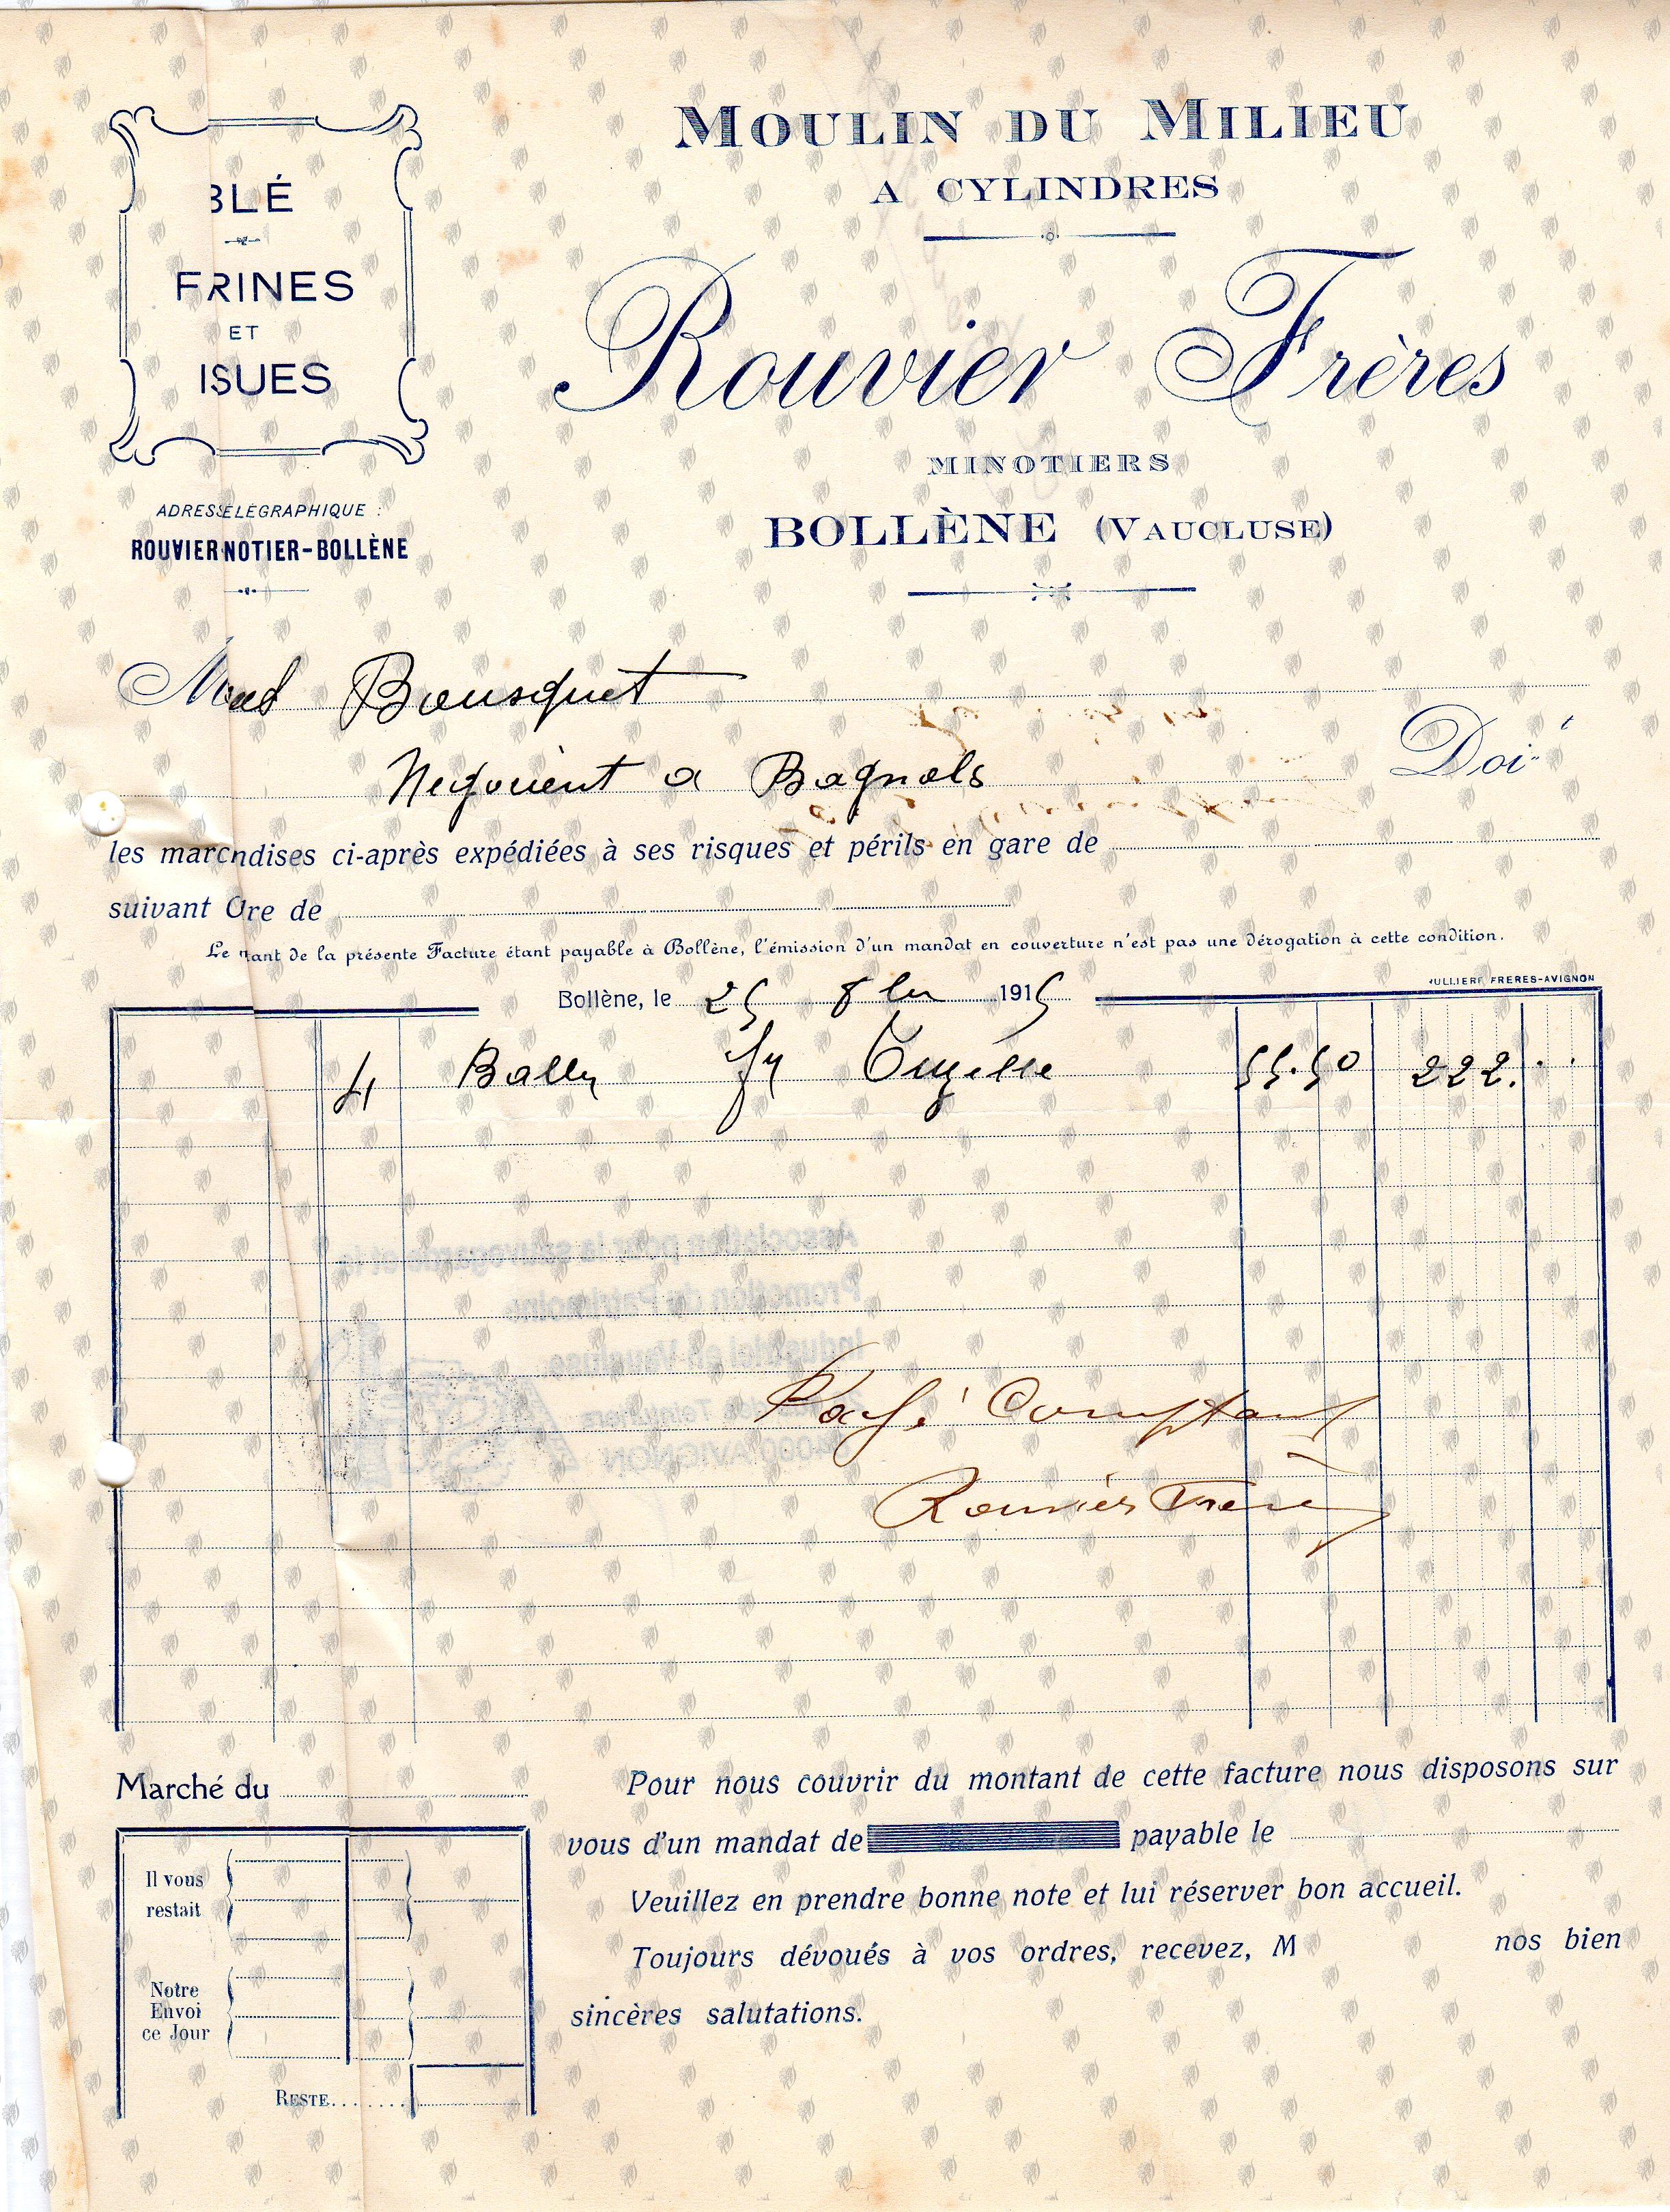 MOULIN DU MILIEU
A CYLINDRES
Rouvier Frères
MINOTIERS
BOLLÈNE (VAUCLUSE)
BLÉ
FRINES
ET
ISUES
ADRESSÉLÉGRAPHIQUE :
ROUVIERNOTIER-BOLLÈNE
Bousquet
Negocient a Bagnols
Doi
les marcndises ci-après expédiées à ses risques et périls en gare de
suivant Ore de
Le tant de la présente Facture étant payable à Bollène, l'émission d'un mandat en couverture n'est pas une dérogation à cette condition.
ULLIERE FRERES-AVIGNON
Bollène, le 25 8bre 1915
4 Balles Tuzelle 55.50 222. . .
Association pour la sauvegarde et la
Promotion du Patrimoine
Industriel en Vaucluse
Teinturiers
84000 AVIGNON
Payé Comptant
Rouvier Frères
Marché du
Il vous
restait
Notre
Envoi
ce Jour
RESTE........
Pour nous couvrir du montant de cette facture nous disposons sur
vous d'un mandat de payable le
Veuillez en prendre bonne note et lui réserver bon accueil.
Toujours dévoués à vos ordres, recevez, M nos bien
sincères salutations.